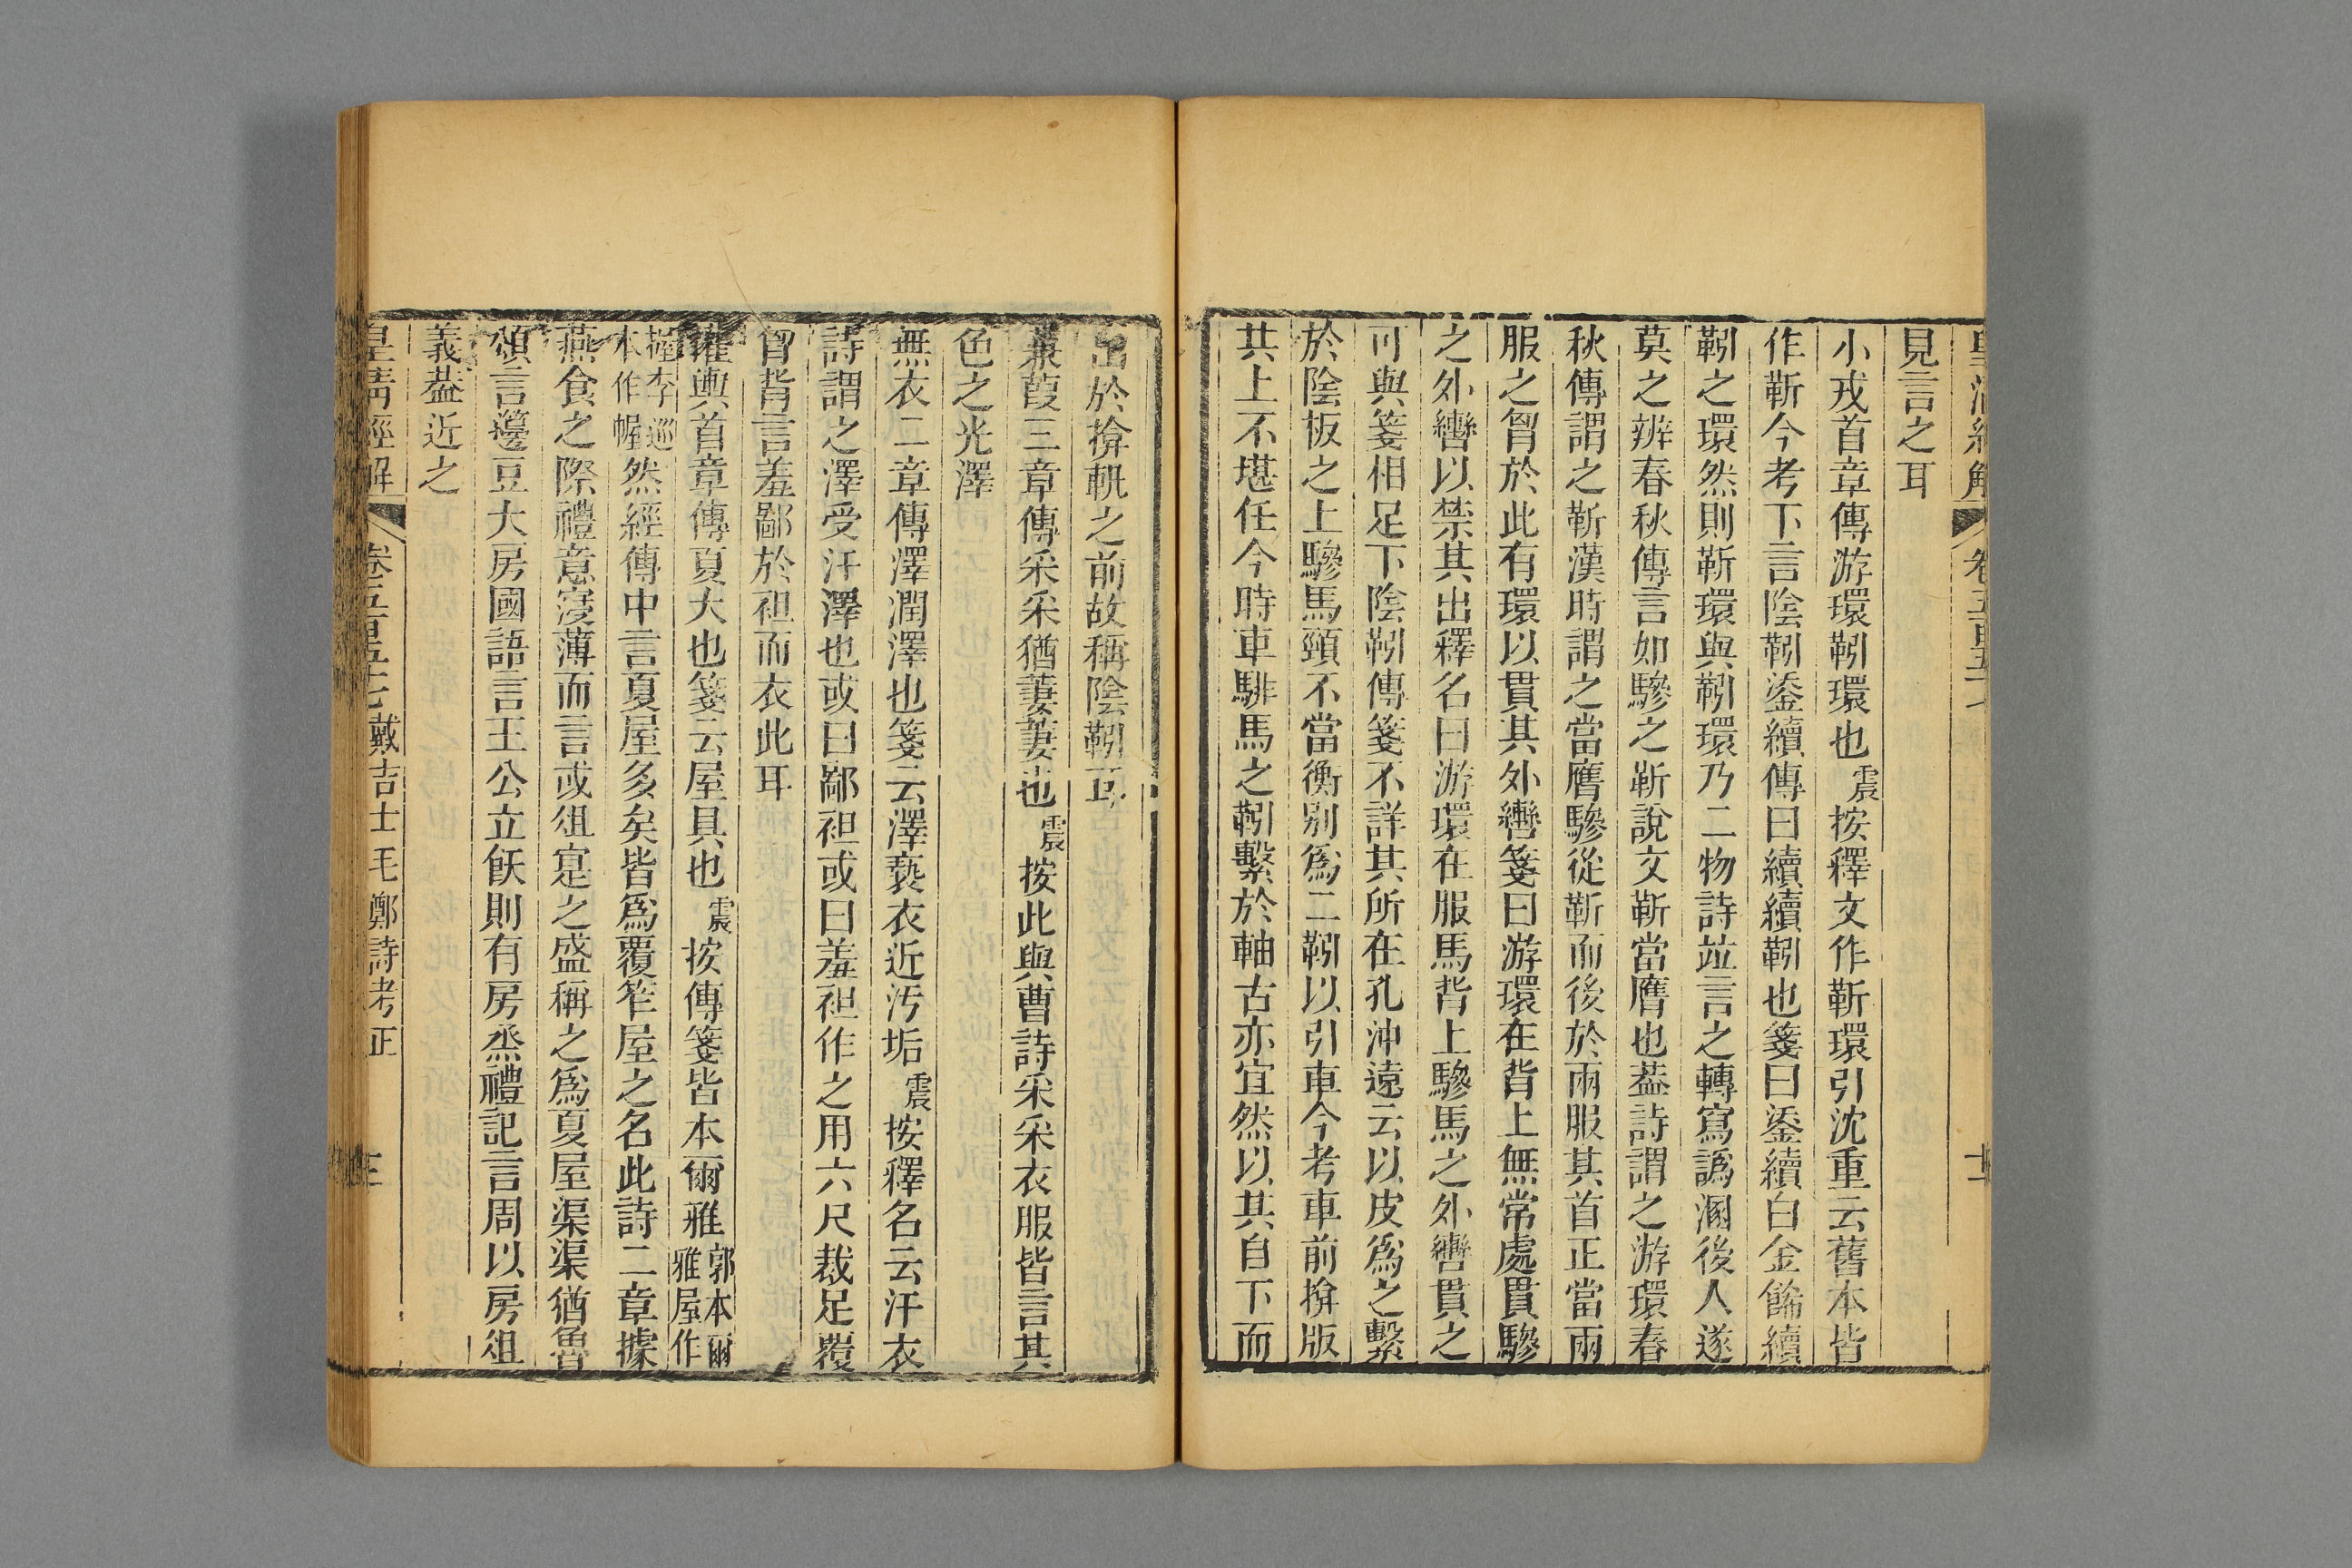 見言之耳
小戎首章傳游環靷環也震按釋文作靳環引沈重云舊本皆
作靳今考下言陰靷鋈續傳曰續續靷也箋曰鋈續白金飾續
靷之環然則靳環與靷環乃二物詩竝言之轉寫譌溷後人遂
莫之辨春秋傳言如驂之靳說文靳當膺也葢詩謂之游環春
秋傳謂之靳漢時謂之當膺驂從靳而後於兩服其首正當兩
服之胷於此有環以貫其外轡箋曰游環在背上無常處貫驂
之外轡以禁其出釋名曰游環在服馬背上驂馬之外轡貫之
可與箋相足下陰靷傳箋不詳其所在孔沖遠云以皮爲之繫
於陰板之上驂馬頸不當衡別爲二靷以引車今考車前揜版
其上不堪任今時車騑馬之靷繫於軸古亦宜然以其自下而
出於揜軓之前故稱陰靷耳
蒹葭三章傳采采猶萋萋也震按此與曹詩采采衣服皆言其
色之光澤
無衣二章傳澤潤澤也箋云澤褻衣近汚垢震按釋名云汗衣
詩謂之澤受汗澤也或曰鄙袒或曰羞袒作之用六尺裁足覆
胷背言羞鄙於袒而衣此耳
權輿首章傳夏大也箋云屋具也震按傳箋皆本爾雅郭本爾雅屋作
握李巡本作幄然經傳中言夏屋多矣皆爲覆笮屋之名此詩二章據
燕食之際禮意寖薄而言或俎寔之盛稱之爲夏屋渠渠猶魯
頌言籩豆大房國語言王公立飫則有房烝禮記言周以房俎
義葢近之
皇淸經解 卷五百五十七 戴吉士毛鄭詩考正